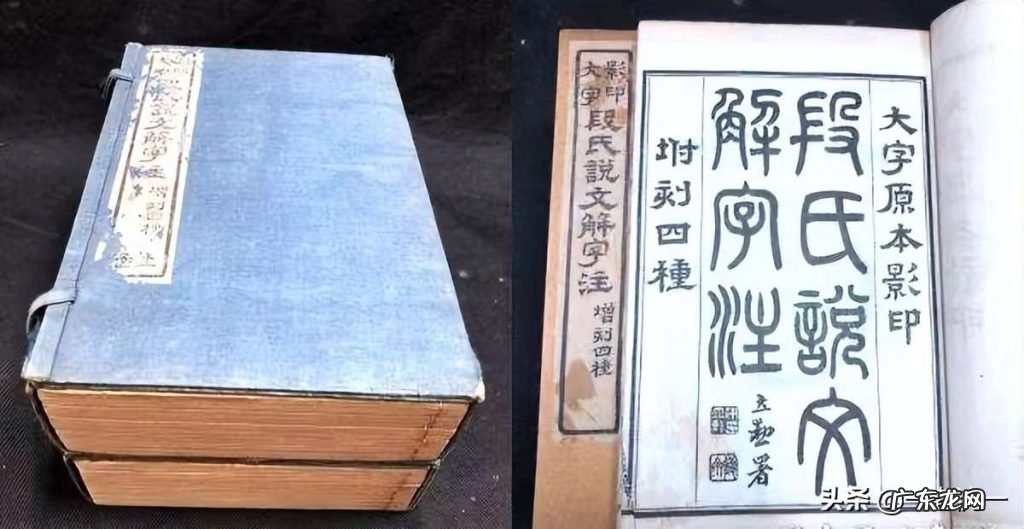 說文解字注
增刻四種
影印
大字
段氏說文解字注
增刻四種
大字原本影印
段氏說文
解字注
署
坿刻四種
头条 @广东龙网一